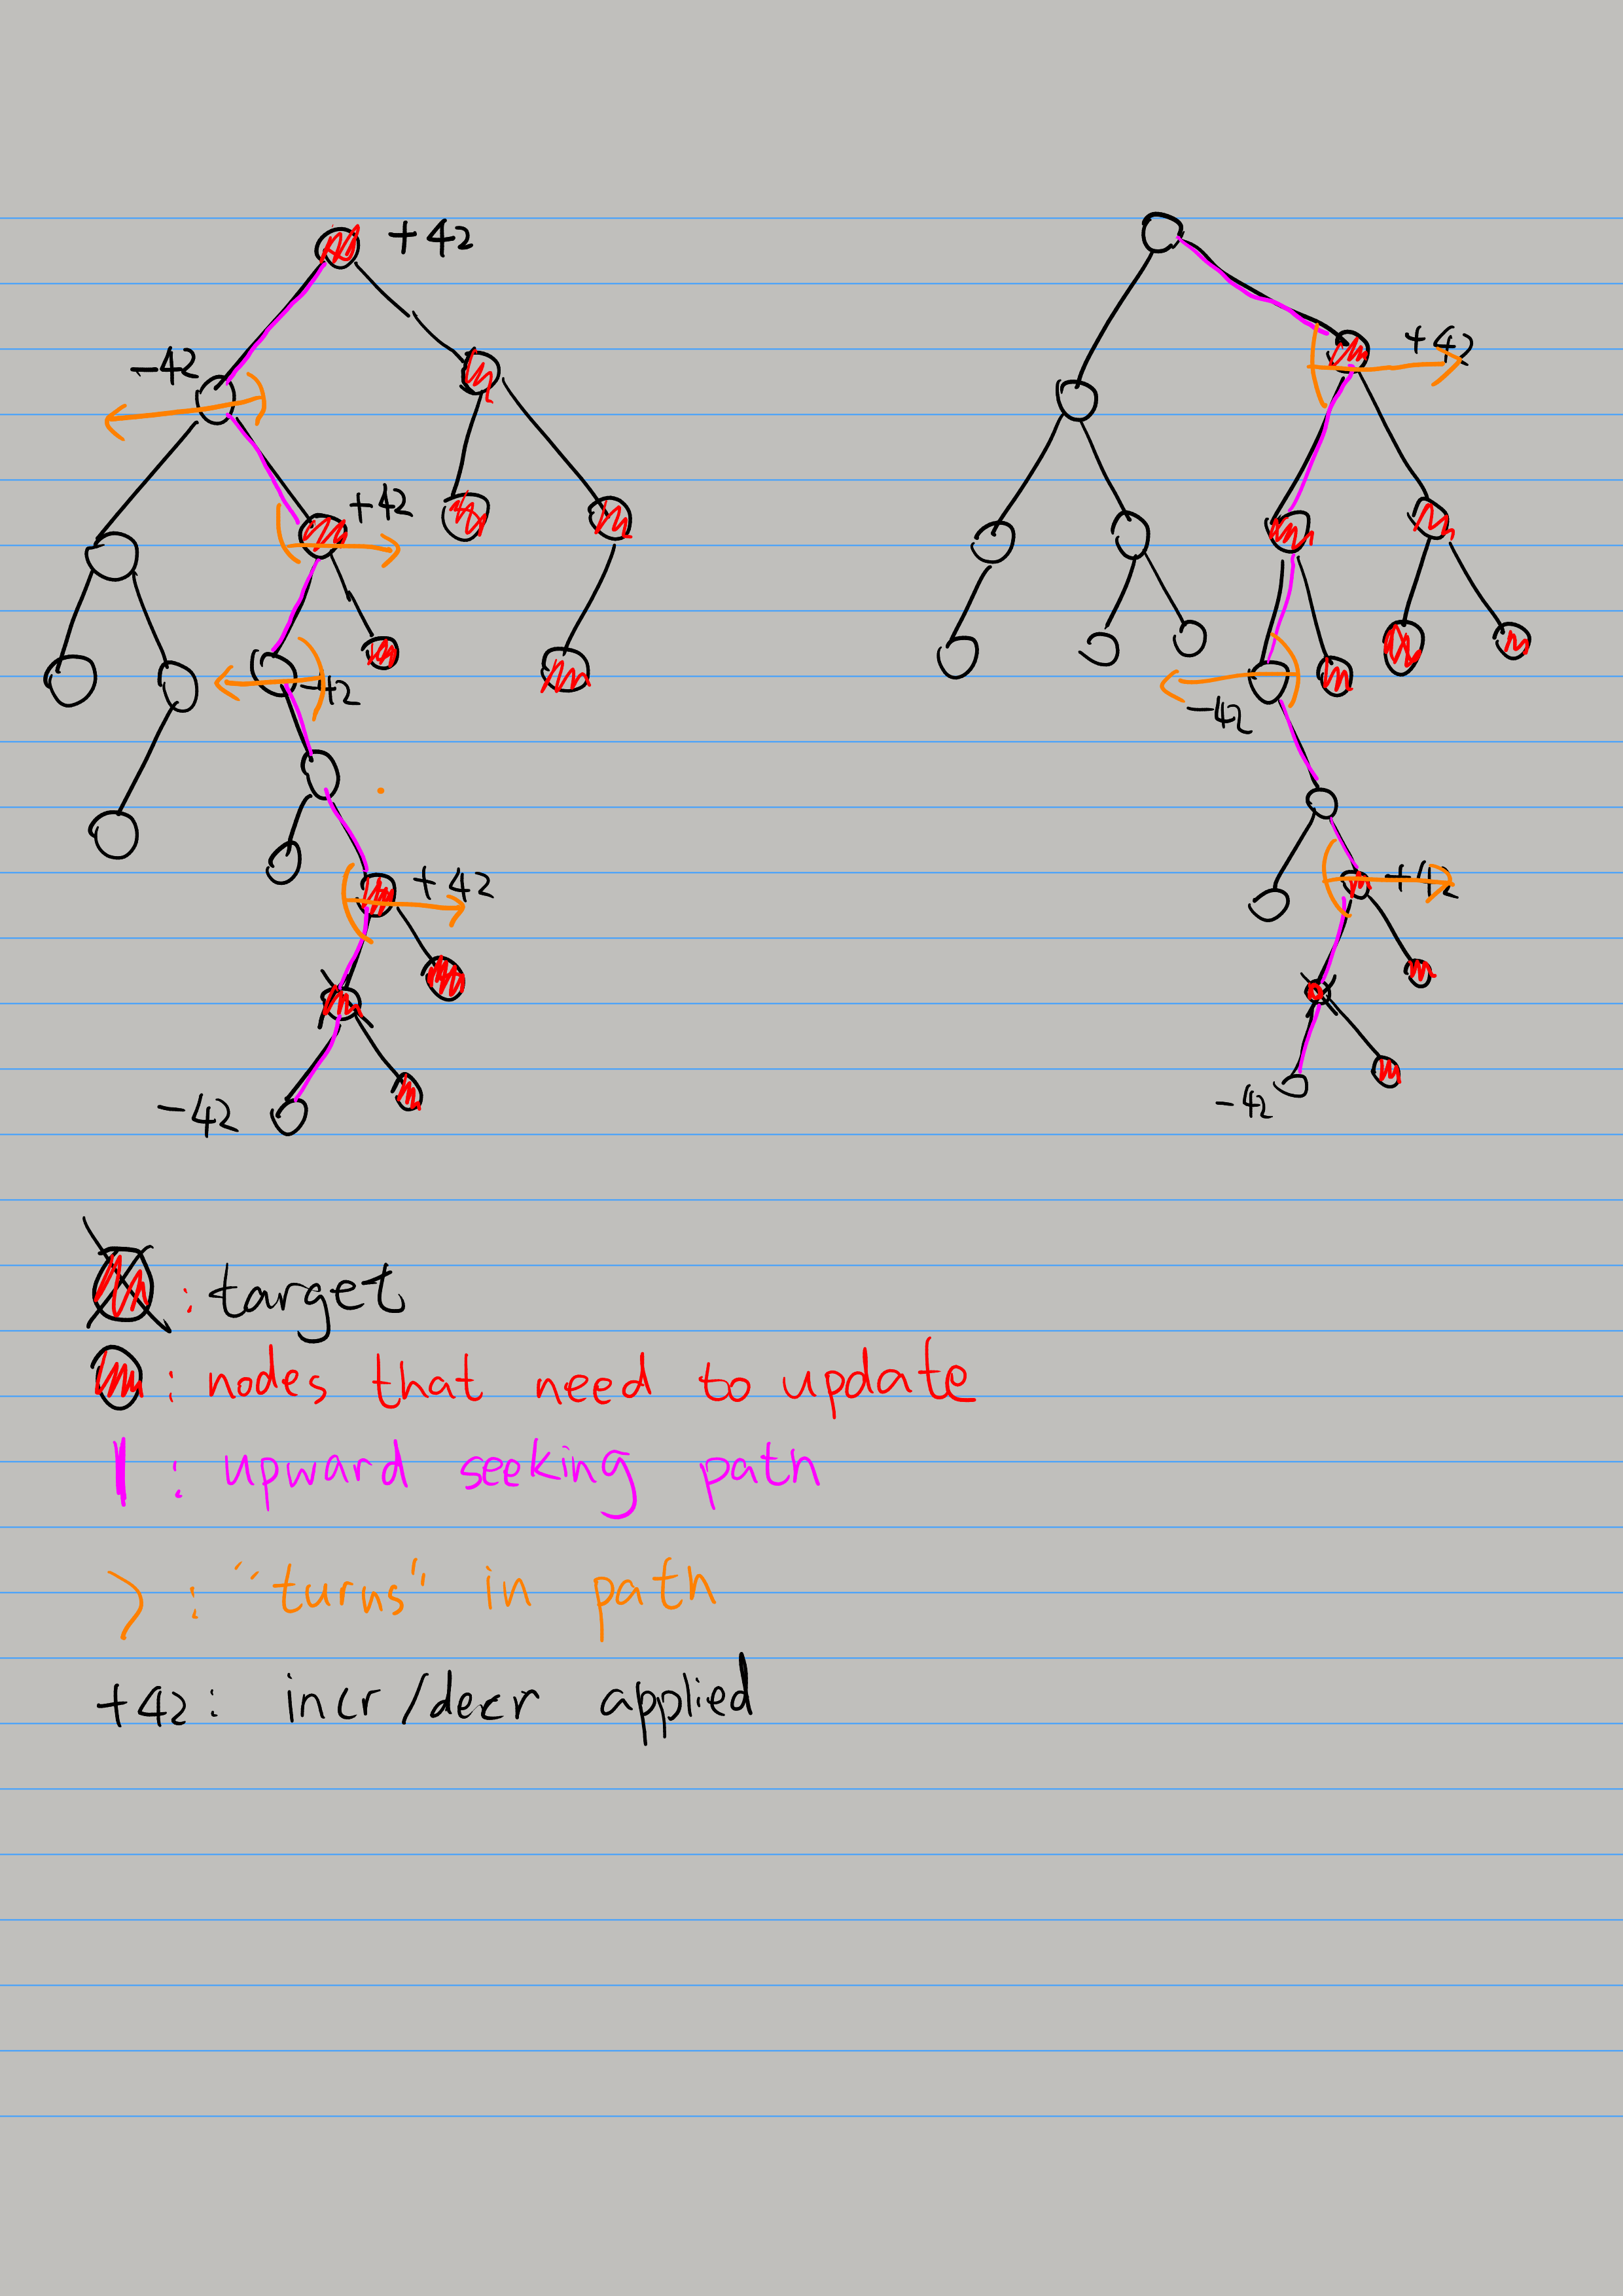 +42
+42
-42
+42
-42
-42
+42
+42
-42
-42
: target
: nodes that need to update
: upward seeking path
: "turns" in path
+42: incr/decr applied